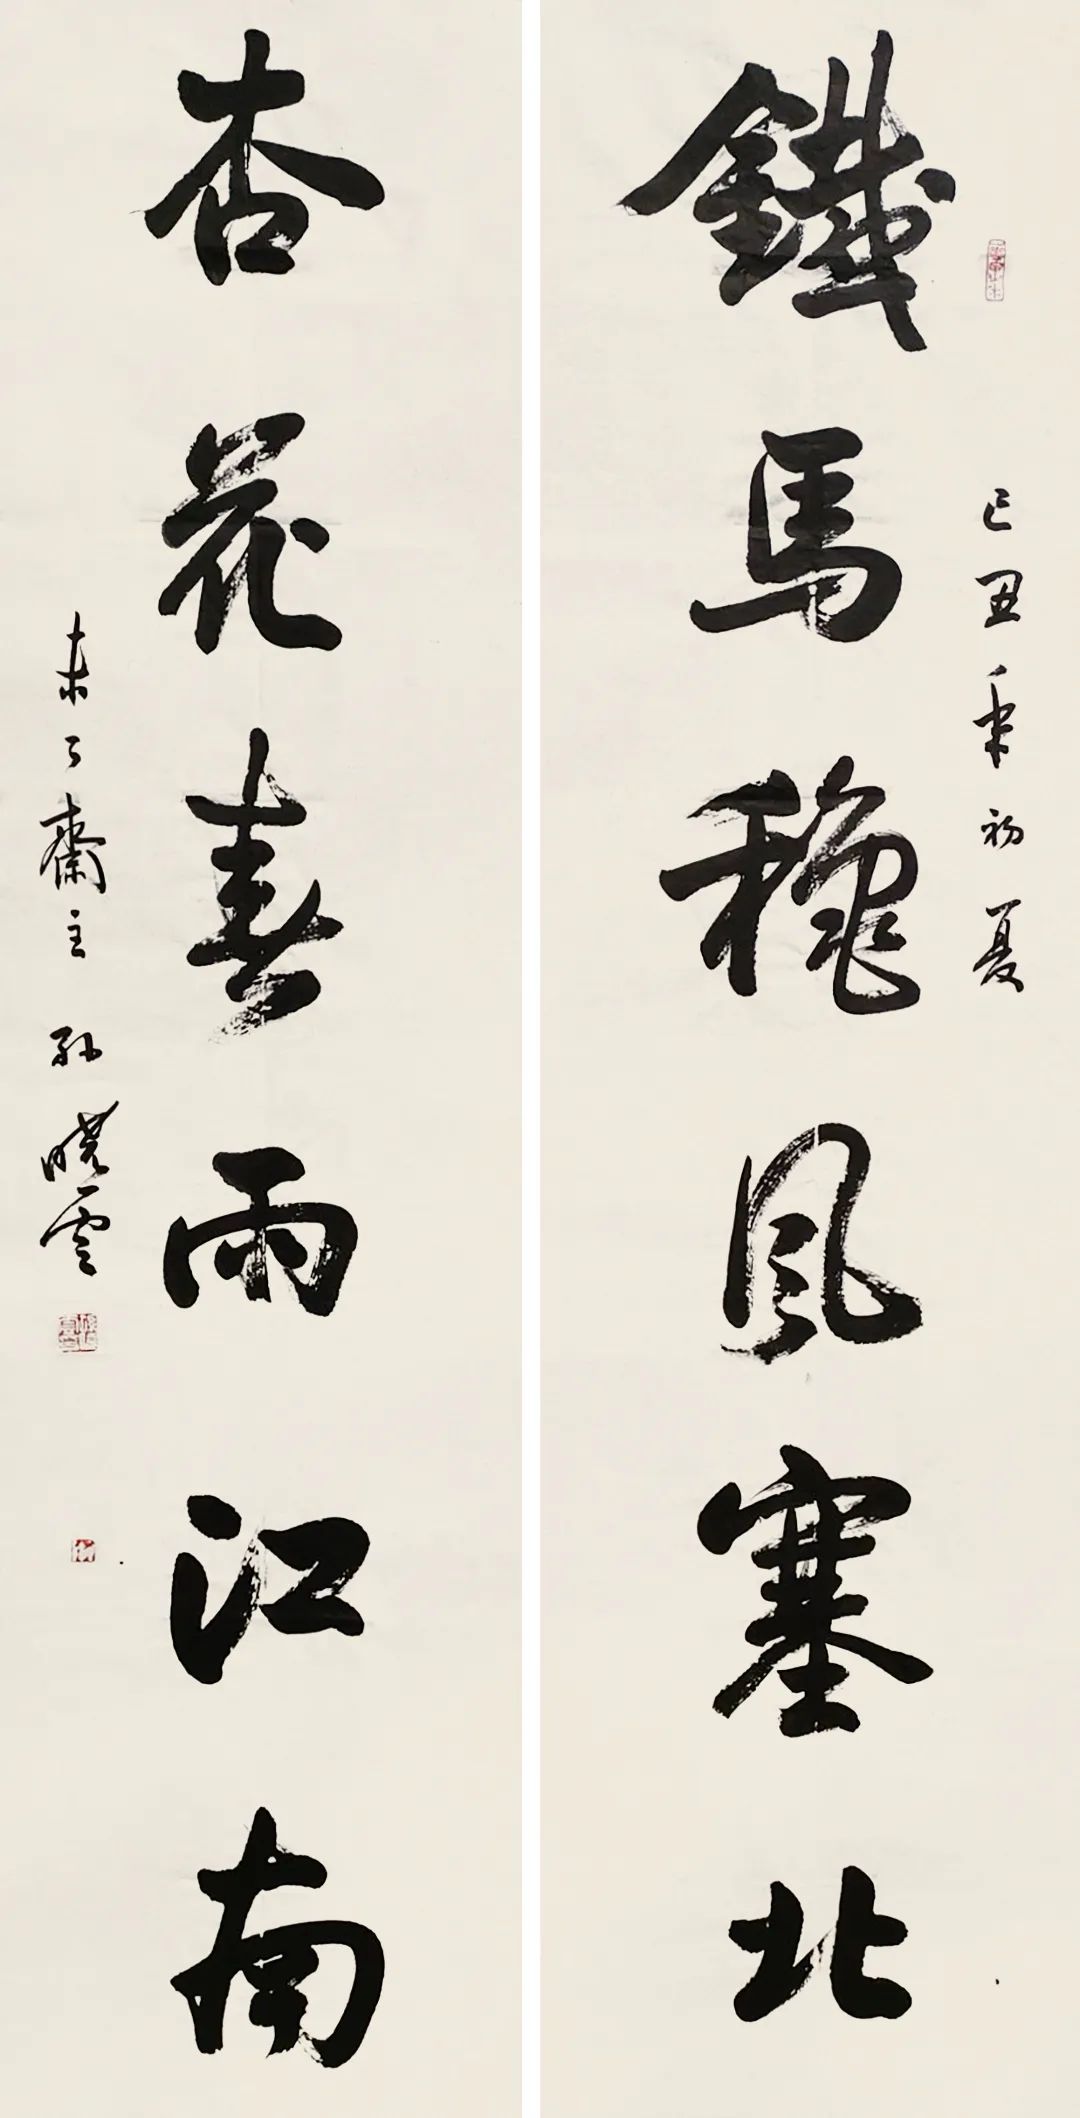 己丑年初夏
鐵馬穐風塞北
杏花春雨江南
未了齋主 孫曉雲